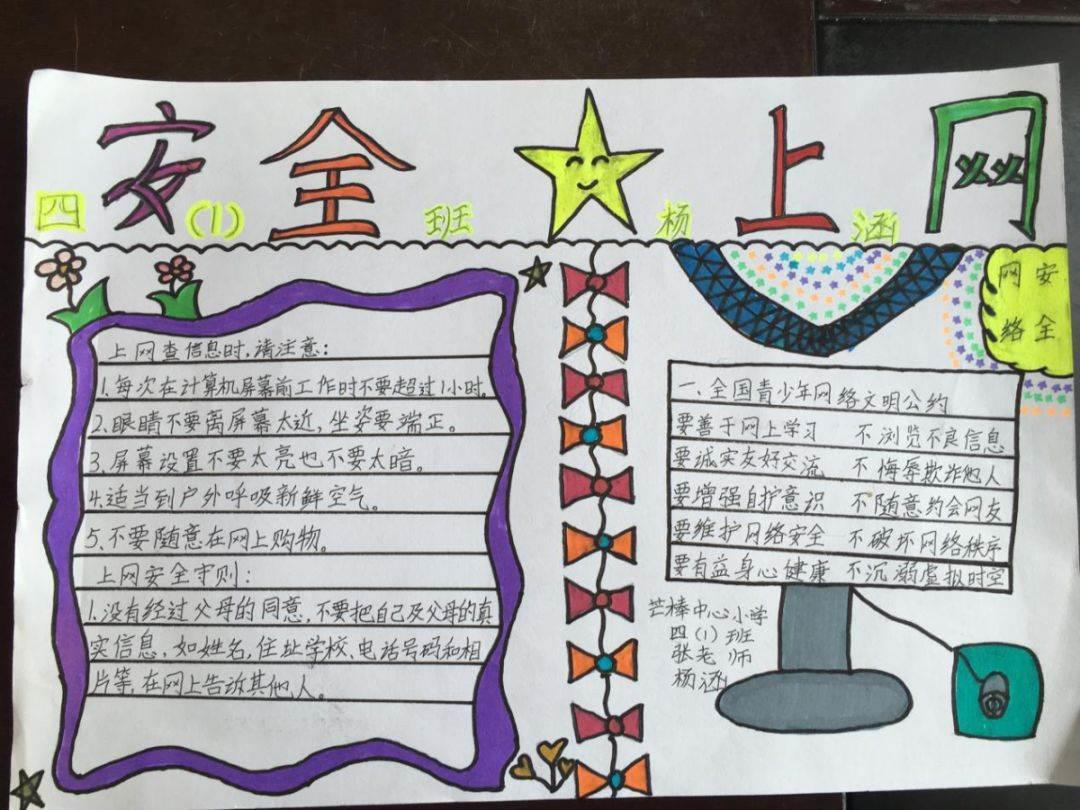 安全上网
四(1)班 杨涵
上网查信息时,请注意:
1.每次在计算机屏幕前工作时不要超过1小时。
2.眼睛不要离屏幕太近,坐姿要端正。
3.屏幕设置不要太亮也不要太暗。
4.适当到户外呼吸新鲜空气。
5.不要随意在网上购物。
上网安全守则:
1.没有经过父母的同意,不要把自己及父母的真
实信息,如姓名,住址学校、电话号码和相
片等,在网上告诉其他人。
网络
安全
一、全国青少年网络文明公约
要善于网上学习 不浏览不良信息
要诚实友好交流 不侮辱欺诈他人
要增强自护意识 不随意约会网友
要维护网络安全 不破坏网络秩序
要有益身心健康 不沉溺虚拟时空
芒棒中心小学
四(1)班
张老师
杨涵